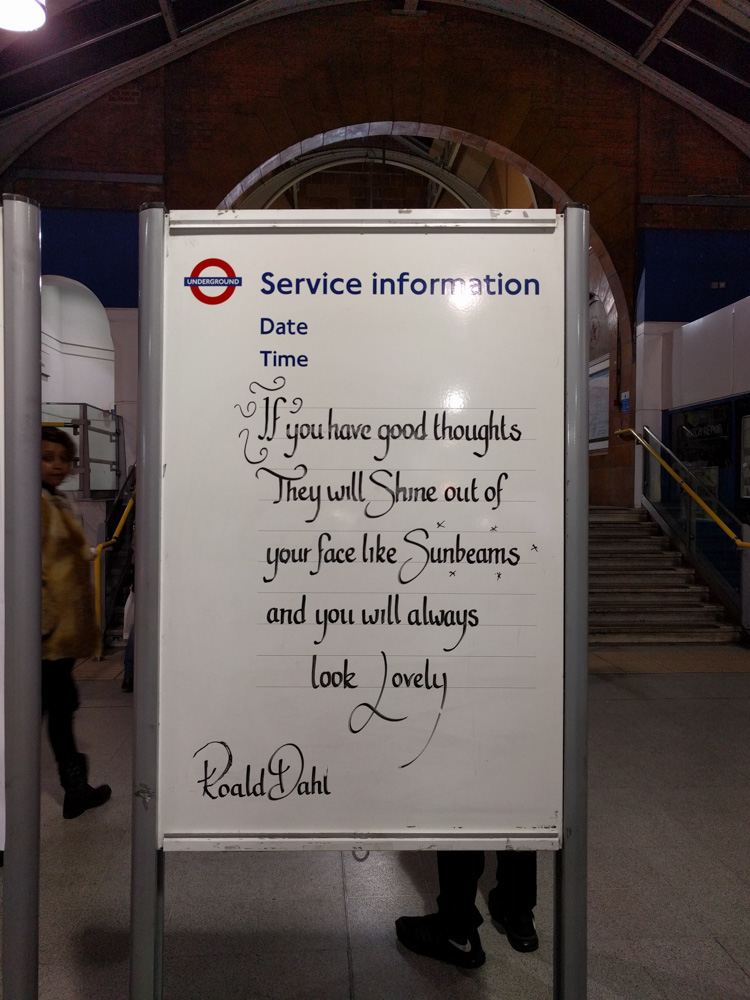 UNDERGROUND
Service information
Date
Time
If you have good thoughts
They will Shine out of
your face like Sunbeams
and you will always
look Lovely
Roald Dahl